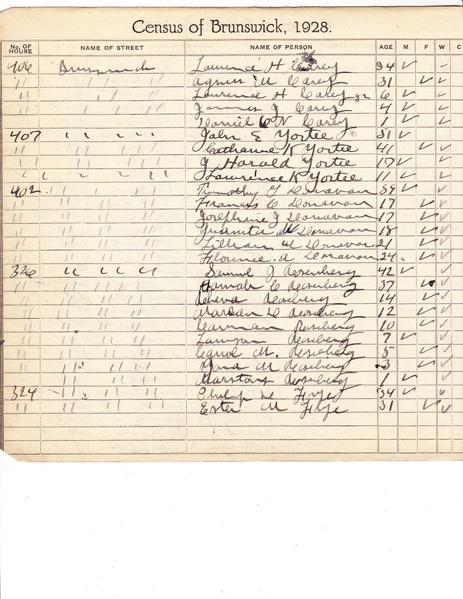 Census of Brunswick, 1928.
No. OF HOUSE NAME OF STREET NAME OF PERSON AGE M F W C
406 Brunswick Lawrence H Carey 34 ✓ ✓
" " " Agnes M Carey 31 ✓ ✓
" " " Lawrence H Carey Jr 6 ✓ ✓
" " " James J Carey 4 ✓ ✓
" " " Daniel C Carey 1 ✓ ✓
407 " " " " John E Yortee 51 ✓
" " " Catharine K Yortee 41 ✓ ✓
" " " J Harold Yortee 17 ✓ ✓
" " " " Lawrence K Yortee 11 ✓ ✓
402 " " " Timothy F Donavan 54 ✓ ✓
" " " Frances C Donavan 17 ✓ ✓
" " " Josephine J Donavan 17 ✓ ✓
" " " Juanita M Donavan 18 ✓ ✓
" " " Lillian M Donavan 21 ✓ ✓
" " " Florence A Donavan 24 ✓ ✓
326 " " " " Samuel J Rosenberg 42 ✓ ✓
" " " Hannah C Rosenberg 37 ✓ ✓
" " " Rosenberg 14 ✓ ✓
" " " Marian Rosenberg 12 ✓ ✓
" " " Carman Rosenberg 10 ✓ ✓
" " " Rosenberg 7 ✓ ✓
" " " M. Rosenberg 5 ✓ ✓
" " " M Rosenberg 3 ✓ ✓
" " " Rosenberg 1 ✓ ✓
324 " " " Philip Frye 34 ✓ ✓
" " " Ester M Frye 31 ✓ ✓